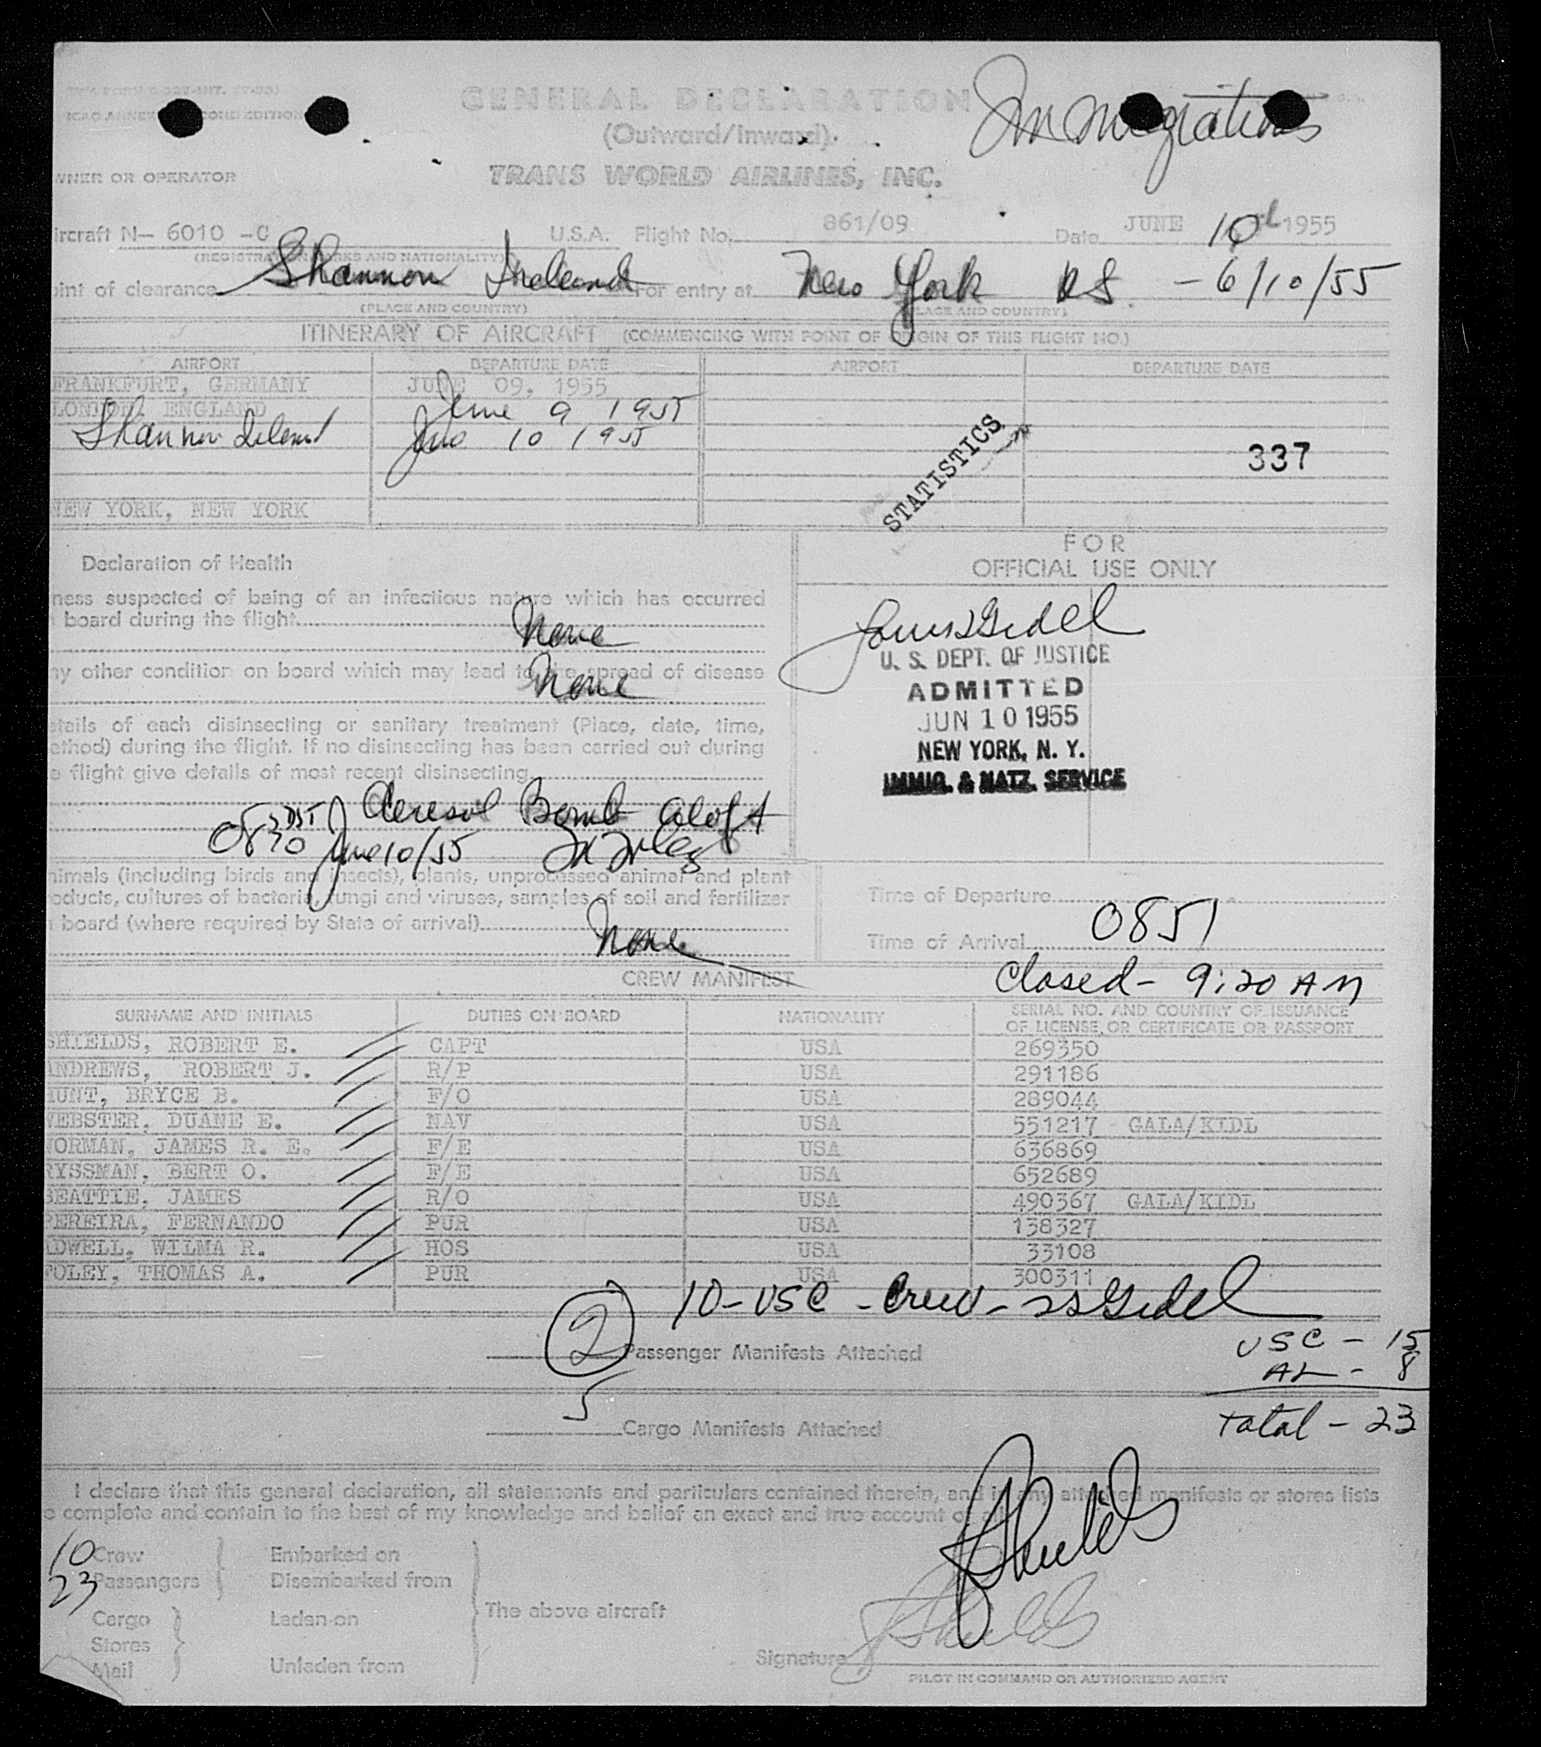 GENERAL DECLARATION
Immigration
(Outward/Inward)
TRANS WORLD AIRLINES, INC.
WNER OR OPERATOR
ircraft N- 6010 -C U.S.A. Flight No. 861/09 Date JUNE 10 1955
(REGISTRATION MARKS AND NATIONALITY)
oint of clearance Shannon Ireland For entry at New York US - 6/10/55
(PLACE AND COUNTRY) (PLACE AND COUNTRY)
ITINERARY OF AIRCRAFT (COMMENCING WITH POINT OF ORIGIN OF THIS FLIGHT NO.)
AIRPORT DEPARTURE DATE AIRPORT DEPARTURE DATE
FRANKFURT, GERMANY JUNE 09, 1955
LONDON, ENGLAND June 9 1955
Shannon Ireland June 10 1955
STATISTICS
337
NEW YORK, NEW YORK
Declaration of Health
FOR
OFFICIAL USE ONLY
ness suspected of being of an infectious nature which has occurred
board during the flight None
ny other condition on board which may lead to the spread of disease
None
U. S. DEPT. OF JUSTICE
ADMITTED
JUN 10 1955
NEW YORK, N. Y.
IMMIG. & NATZ. SERVICE
etails of each disinsecting or sanitary treatment (Place, date, time,
ethod) during the flight. If no disinsecting has been carried out during
e flight give details of most recent disinsecting
Aerosol Bomb aloft
0830 DST June 10/55
nimals (including birds and insects), plants, unprocessed animal and plant
oducts, cultures of bacteria, fungi and viruses, samples of soil and fertilizer
board (where required by State of arrival) None
Time of Departure
Time of Arrival 0851
Closed - 9:20 AM
CREW MANIFEST
SURNAME AND INITIALS DUTIES ON BOARD NATIONALITY SERIAL NO. AND COUNTRY OF ISSUANCE
OF LICENSE OR CERTIFICATE OR PASSPORT
SHIELDS, ROBERT E. CAPT USA 269350
ANDREWS, ROBERT J. R/P USA 291186
HUNT, BRYCE B. F/O USA 289044
WEBSTER, DUANE E. NAV USA 551217 GALA/KIDL
NORMAN, JAMES R. E. F/E USA 636869
RYSSMAN, BERT O. F/E USA 652689
BEATTIE, JAMES R/O USA 490367 GALA/KIDL
PEREIRA, FERNANDO PUR USA 138327
ADWELL, WILMA R. HOS USA 33108
FOLEY, THOMAS A. PUR USA 300311
10 - USC - Crew -
2 Passenger Manifests Attached
USC - 15
AL - 8
Total - 23
5 Cargo Manifests Attached
I declare that this general declaration, all statements and particulars contained therein, and in any attached manifests or stores lists
e complete and contain to the best of my knowledge and belief an exact and true account of all
10 Crew Embarked on
23 Passengers Disembarked from
Cargo Laden on The above aircraft
Stores
Mail Unladen from
Shields
Shields
Signature
PILOT IN COMMAND OR AUTHORIZED AGENT